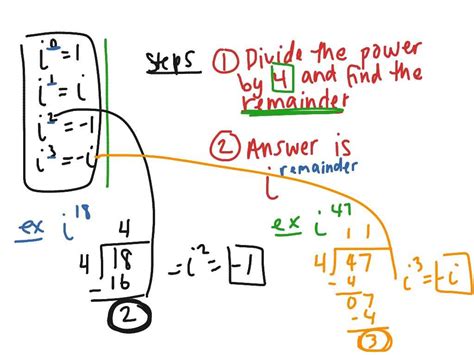 i⁰=1
i¹=i
i²=-1
i³=-i
Steps
① Divide the power
by 4 and find the
remainder
② Answer is
i^remainder
ex i¹⁸
4
4 18
-16
2
=i²=-1
ex i⁴⁷
11
4 47
-4
07
-4
3
i³=-i